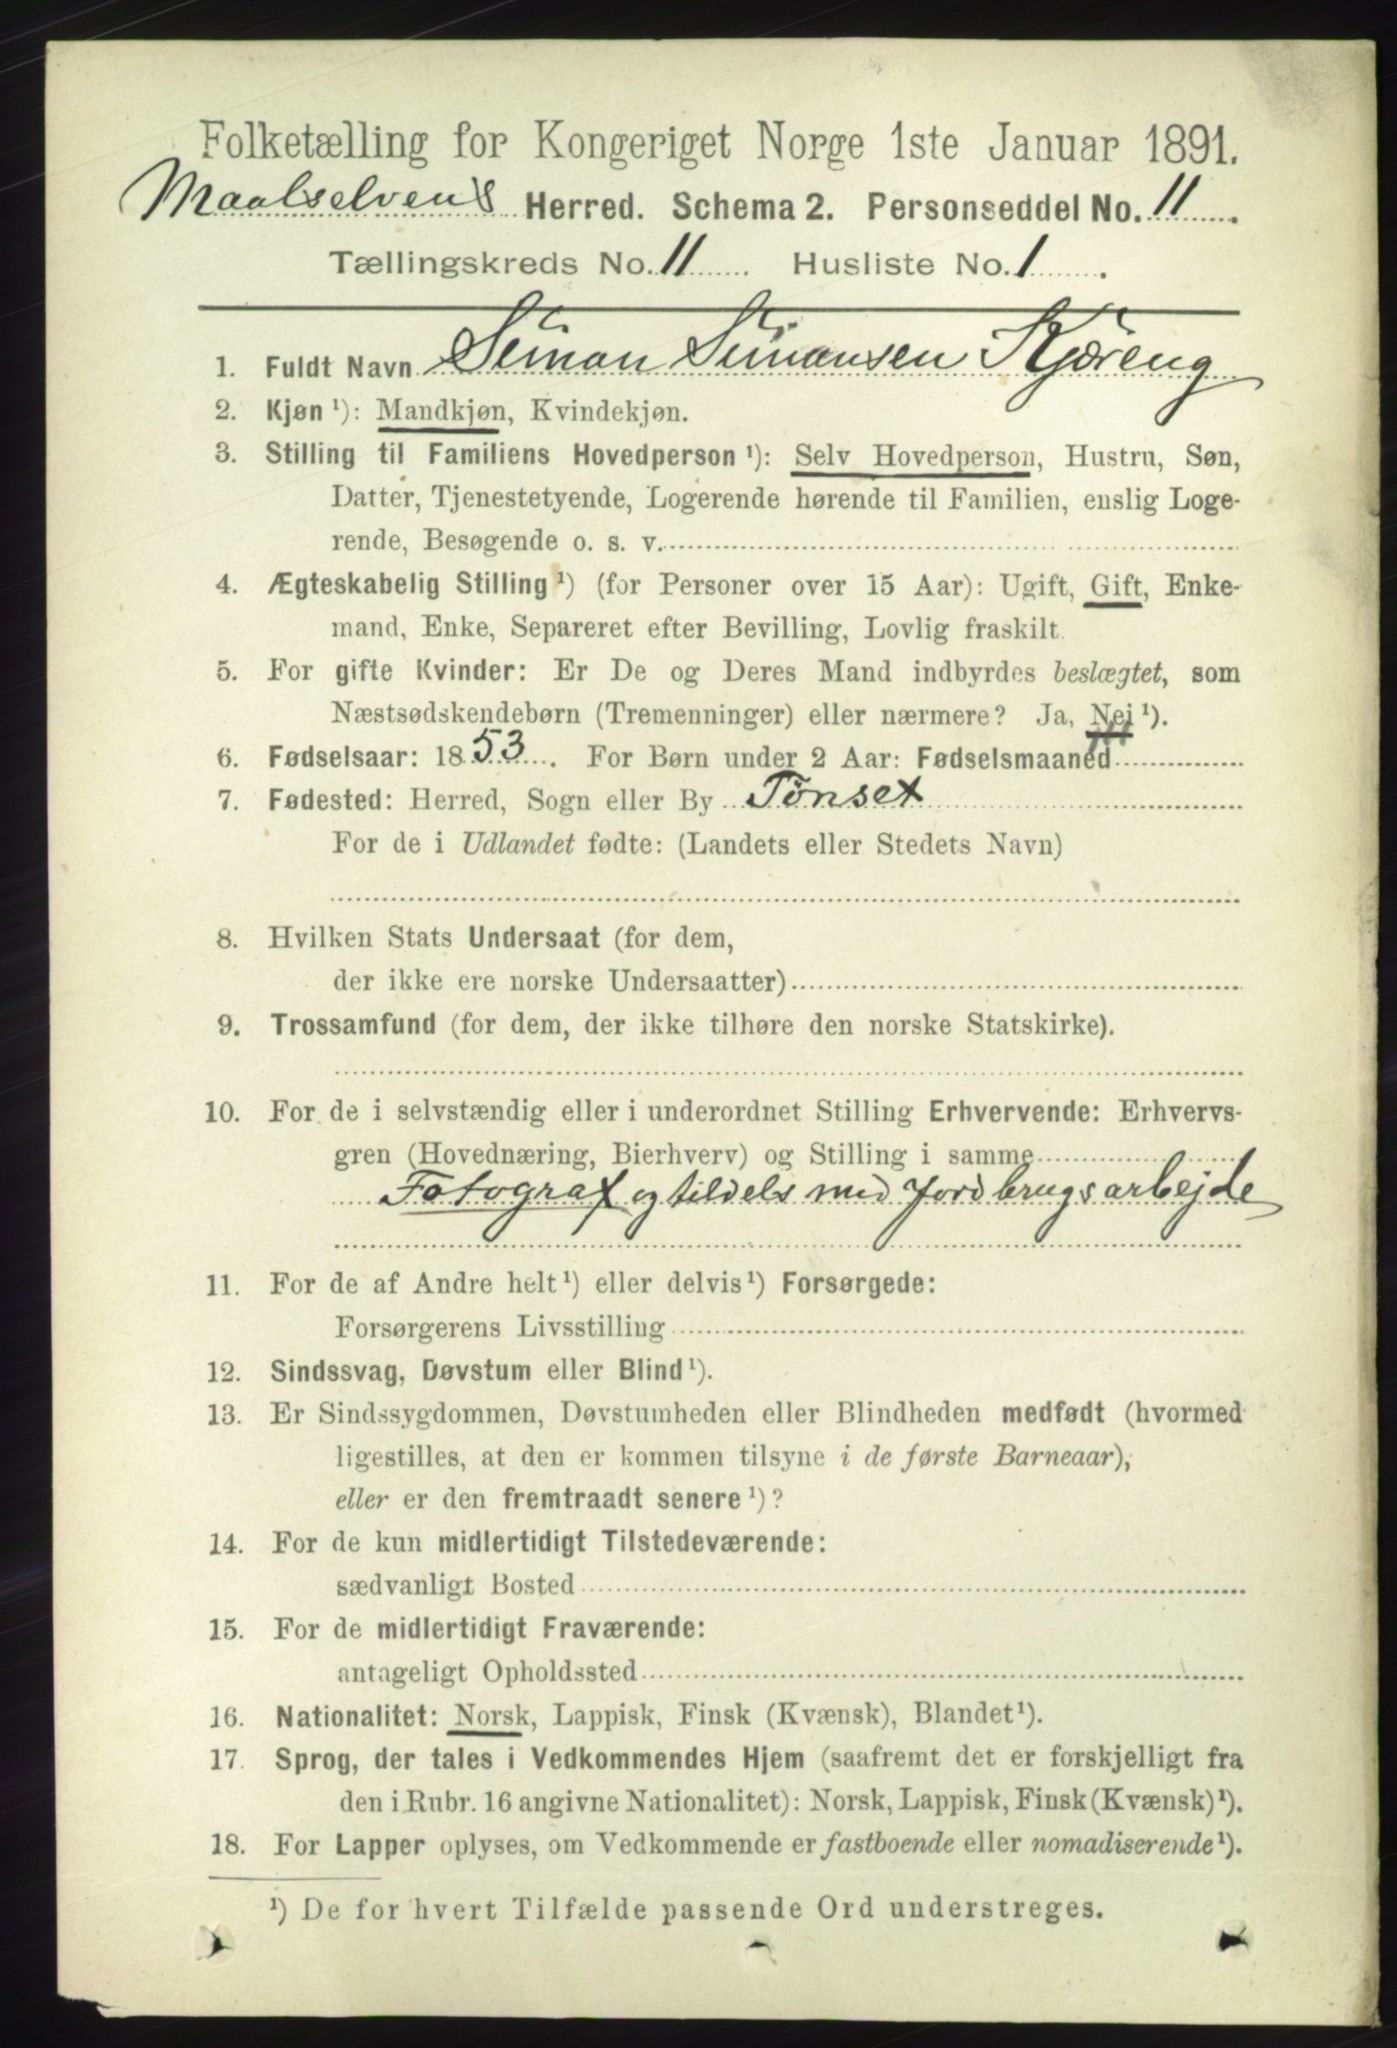 Folketælling for Kongeriget Norge 1ste Januar 1891.
Maalselvens Herred. Schema 2. Personseddel No. 11
Tællingskreds No. 11 Husliste No. 1
1. Fuldt Navn Simon Simonsen Kjøreng
2. Kjøn ¹): Mandkjøn, Kvindekjøn.
3. Stilling til Familiens Hovedperson ¹): Selv Hovedperson, Hustru, Søn,
Datter, Tjenestetyende, Logerende hørende til Familien, enslig Loge-
rende, Besøgende o. s. v.
4. Ægteskabelig Stilling ¹) (for Personer over 15 Aar): Ugift, Gift, Enke-
mand, Enke, Separeret efter Bevilling, Lovlig fraskilt.
5. For gifte Kvinder: Er De og Deres Mand indbyrdes beslægtet, som
Næstsødskendebørn (Tremenninger) eller nærmere? Ja, Nei ¹).
6. Fødselsaar: 1853. For Børn under 2 Aar: Fødselsmaaned
7. Fødested: Herred, Sogn eller By Tönset
For de i Udlandet fødte: (Landets eller Stedets Navn)
8. Hvilken Stats Undersaat (for dem,
der ikke ere norske Undersaatter)
9. Trossamfund (for dem, der ikke tilhøre den norske Statskirke).
10. For de i selvstændig eller i underordnet Stilling Erhvervende: Erhvervs-
gren (Hovednæring, Bierhverv) og Stilling i samme
Fotograf og tildels med Jordbrugsarbejde
11. For de af Andre helt ¹) eller delvis ¹) Forsørgede:
Forsørgerens Livsstilling
12. Sindssvag, Døvstum eller Blind ¹).
13. Er Sindssygdommen, Døvstumheden eller Blindheden medfødt (hvormed
ligestilles, at den er kommen tilsyne i de første Barneaar),
eller er den fremtraadt senere ¹)?
14. For de kun midlertidigt Tilstedeværende:
sædvanligt Bosted
15. For de midlertidigt Fraværende:
antageligt Opholdssted
16. Nationalitet: Norsk, Lappisk, Finsk (Kvænsk), Blandet ¹).
17. Sprog, der tales i Vedkommendes Hjem (saafremt det er forskjelligt fra
den i Rubr. 16 angivne Nationalitet): Norsk, Lappisk, Finsk (Kvænsk) ¹).
18. For Lapper oplyses, om Vedkommende er fastboende eller nomadiserende ¹).
¹) De for hvert Tilfælde passende Ord understreges.